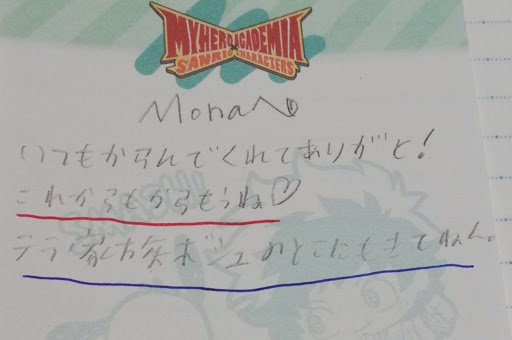 MY HERO ACADEMIA
SANRIO CHARACTERS
Monaへ
いつもからんでくれてありがと!
これからもからもうね♡
テラ家 のとこにもきてねん。